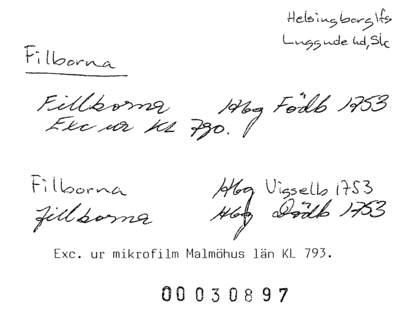 Helsingborg lfs
Luggude hd, Sk
Filborna
Fillborna Hbg Födb 1753
Exc ur KL 790.
Filborna Hbg Vigselb 1753
Fillborna Hbg Dödb 1753
Exc. ur mikrofilm Malmöhus län KL 793.
00030897